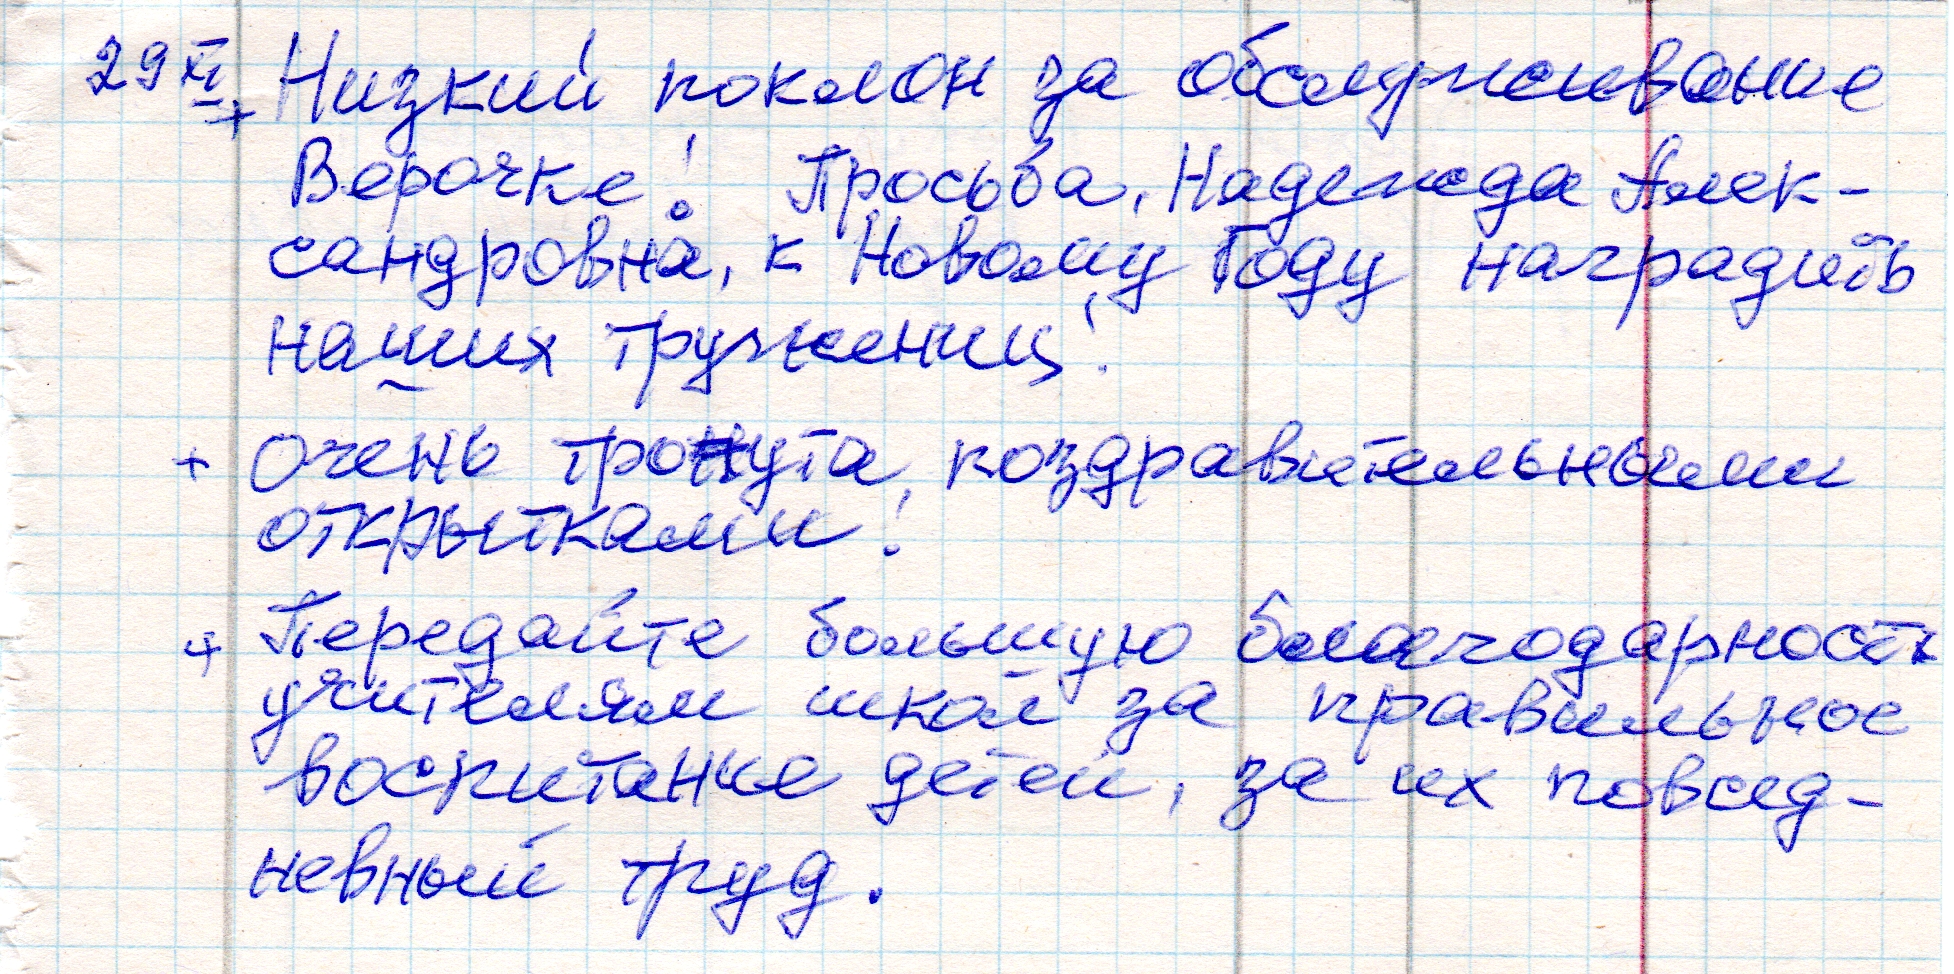 29 XI + Низкий поклон за обслуживание
Верочке! Просьба, Надежда Алек-
сандровна, к Новому Году наградить
наших тружениц!
+ Очень тронута, поздравительными
открытками!
+ Передайте большую благодарность
учителям школ за правильное
воспитание детей, за их повсед-
невный труд.